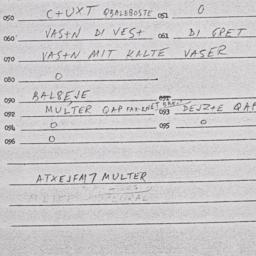 050 C+UXT QBALEBOSTE 051 0
060 VAS+N DI VEST 061 DI GRET
070 VAS+N MIT KALTE VASER
080 0
090 BALBEJE 091
092 MULTER QAP 093 DEJZ+E QAP
094 0 095 0
096 0
ATXEJFM7 MULTER